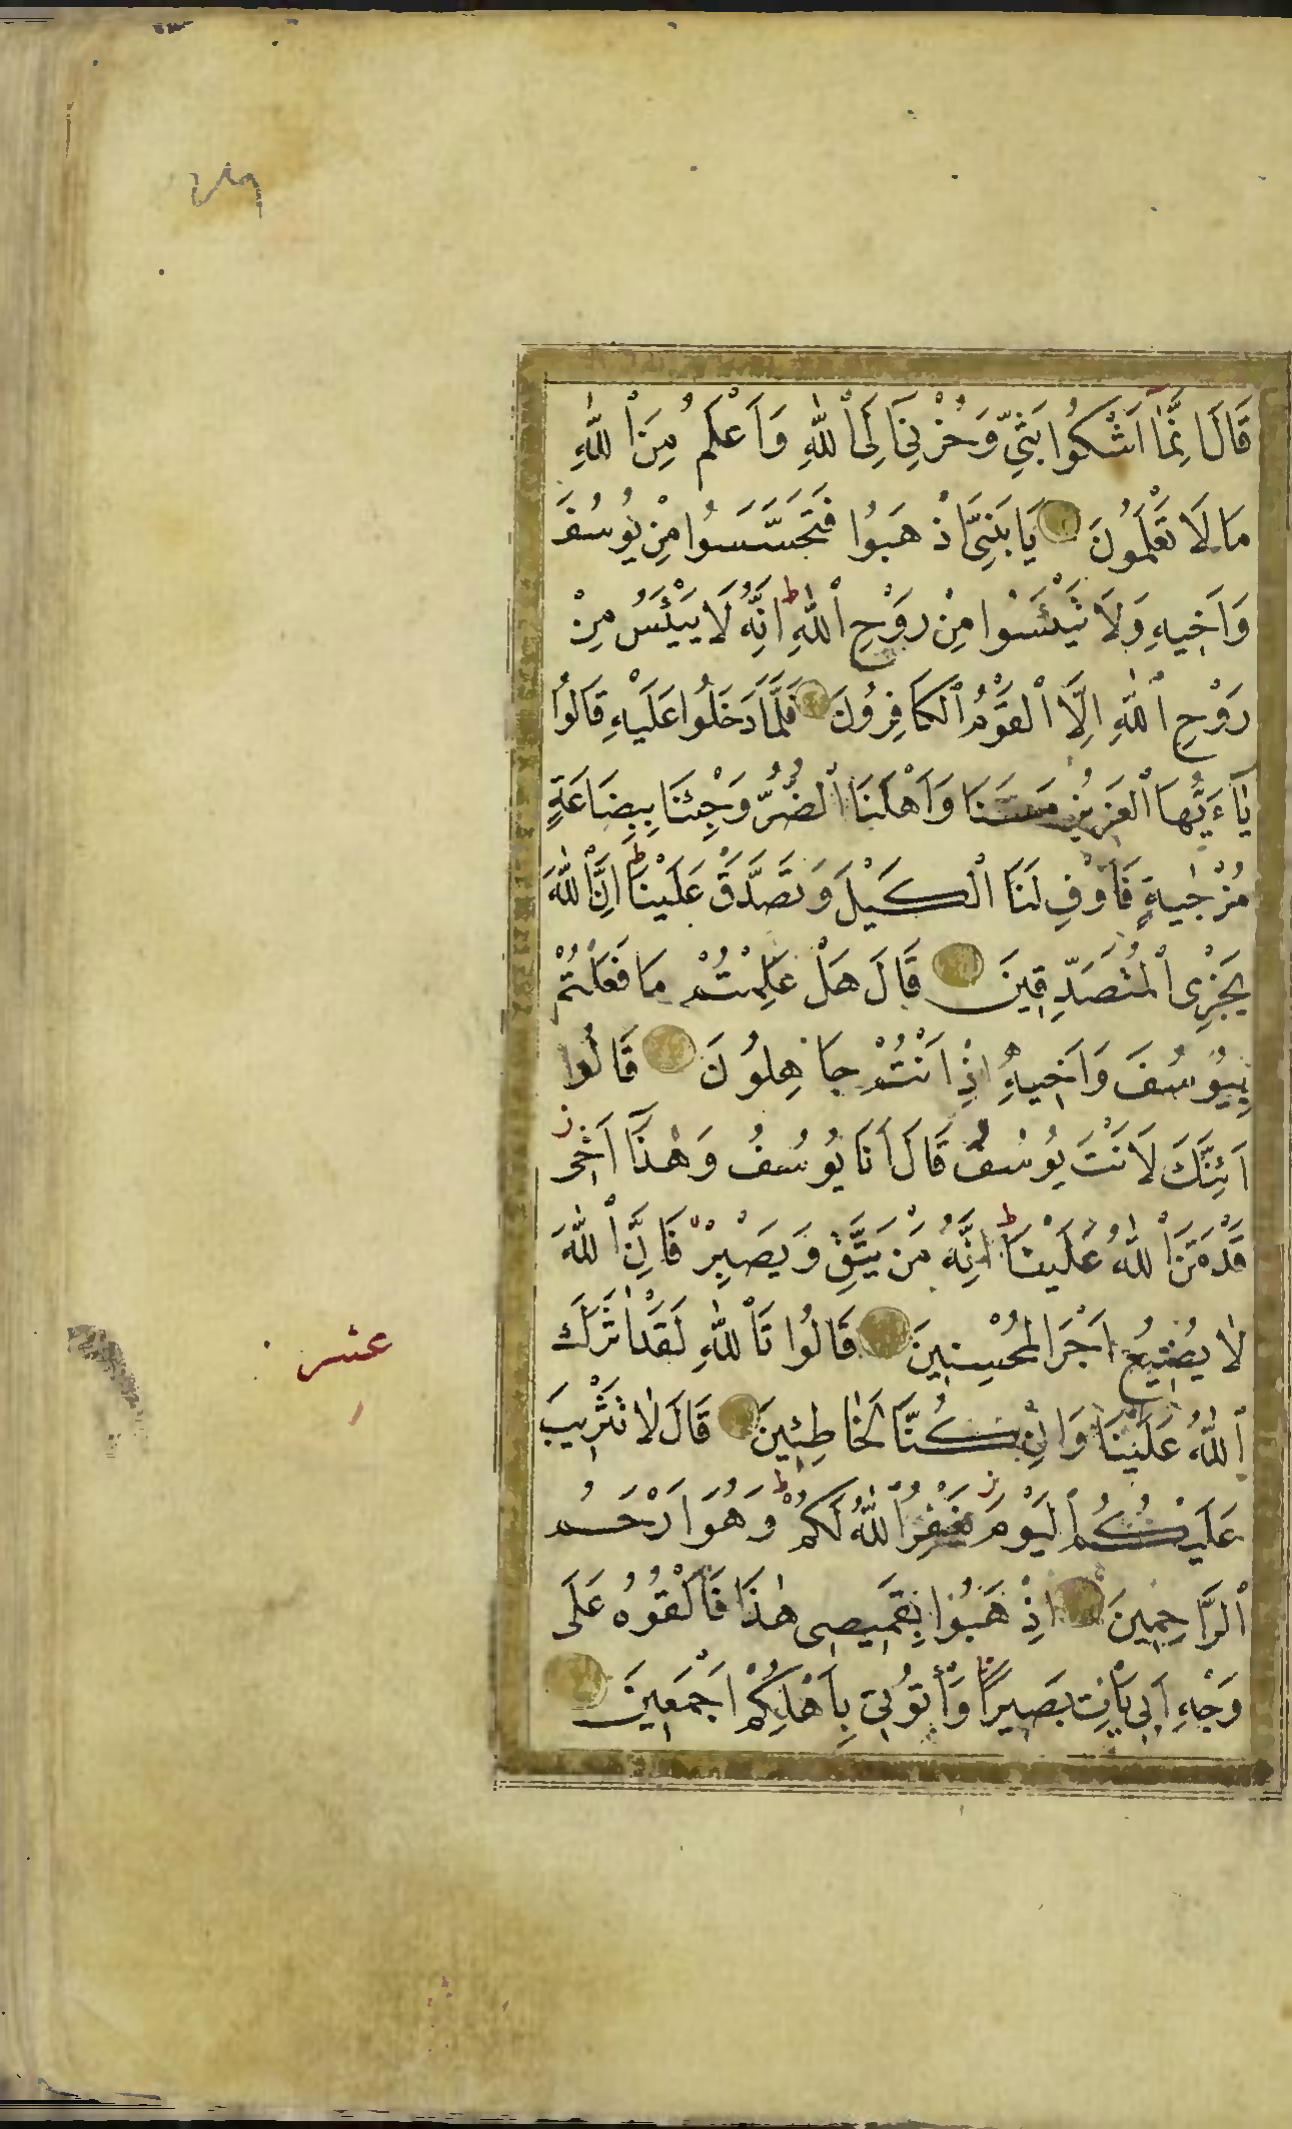 قَالَ اِنَّمَٓا اَشْكُوا بَثِّي وَحُزْنِٓي اِلَى اللّٰهِ وَاَعْلَمُ مِنَ اللّٰهِ
مَا لَا تَعْلَمُونَ يَا بَنِيَّ اذْهَبُوا فَتَحَسَّسُوا مِنْ يُوسُفَ
وَاَخِيهِ وَلَا تَيْئَسُوا مِنْ رَوْحِ اللّٰهِ ط اِنَّهُ لَا يَيْئَسُ مِنْ
رَوْحِ اللّٰهِ اِلَّا الْقَوْمُ الْكَافِرُونَ فَلَمَّا دَخَلُوا عَلَيْهِ قَالُوا
يَٓا ءَيُّهَا الْعَزِيزُ مَسَّنَا وَاَهْلَنَا الضُّرُّ وَجِئْنَا بِبِضَاعَةٍ
مُزْجٰيةٍ فَاَوْفِ لَنَا الْكَيْلَ وَتَصَدَّقْ عَلَيْنَا ط اِنَّ اللّٰهَ
يَجْزِي الْمُتَصَدِّقِينَ قَالَ هَلْ عَلِمْتُمْ مَا فَعَلْتُمْ
بِيُوسُفَ وَاَخِيهِ اِذْ اَنْتُمْ جَاهِلُونَ قَالُوا
اَئِنَّكَ لَاَنْتَ يُوسُفُ قَالَ اَنَا يُوسُفُ وَهٰذَٓا اَخِي ز
قَدْ مَنَّ اللّٰهُ عَلَيْنَا ط اِنَّهُ مَنْ يَتَّقِ وَيَصْبِرْ فَاِنَّ اللّٰهَ
لَا يُضِيعُ اَجْرَ الْمُحْسِنِينَ قَالُوا تَاللّٰهِ لَقَدْ اٰثَرَكَ
اللّٰهُ عَلَيْنَا وَاِنْ كُنَّا لَخَاطِئِينَ قَالَ لَا تَثْرِيبَ
عَلَيْكُمُ الْيَوْمَ ز يَغْفِرُ اللّٰهُ لَكُمْ ط وَهُوَ اَرْحَمُ
الرَّاحِمِينَ اِذْهَبُوا بِقَمِيصِي هٰذَا فَاَلْقُوهُ عَلَى
وَجْهِ اَبِي يَاْتِ بَصِيرًا وَاْتُونِي بِاَهْلِكُمْ اَجْمَعِينَ
عشر